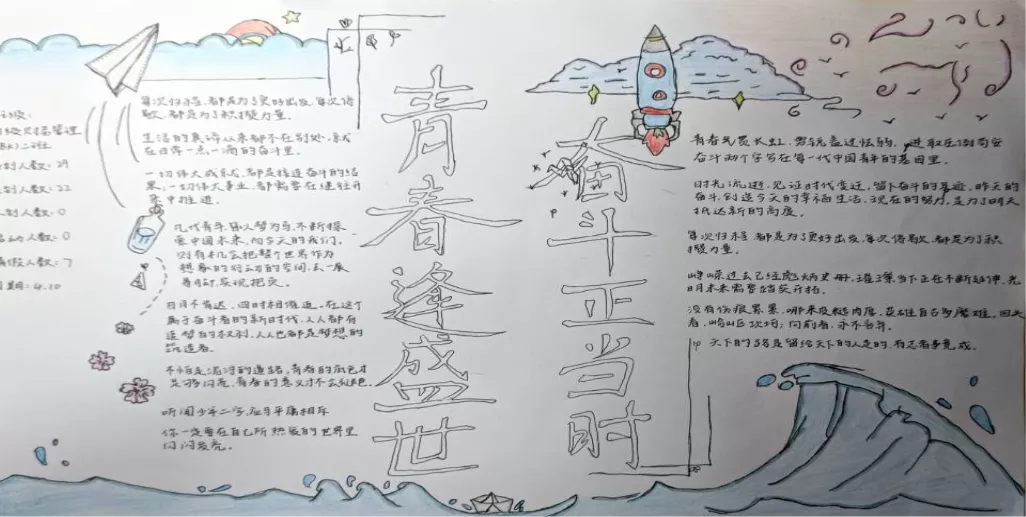 班级:
BK)二班
人数: 29
人数: 22
人数: 0
人数: 0
假人数: 7
日期: 4.10
每次归程,都是为了更好出发,每次停
歇,都是为了积攒力量。
生活的真谛从来都不在别处,就
在日常一点一滴的奋斗里。
一切伟大成就,都是接连奋斗的结
果,一切伟大事业,都需要在继往开
来中推进。
几代青年,以梦为马,不断探
索中国未来,而今天的我们,
则有机会把整个世界作为
想象的行动的空间,去一展
日月不肯迟,四时相催迫,在这个
属于奋斗者的新时代,人人都有
追梦的权利,人人也都是梦想的
筑造者。
不怕是泥泞的道路,青春的底色才
足够闪亮,青春的意义才不会
听闻少年二字,应与平庸相斥
你一定要在自己所热爱的世界里
闪闪发亮。
青春逢盛世
奋斗正当时
青春气贯长虹,勇锐盖过怯弱,进取压倒苟安
奋斗两个字写在每一代中国青年的基因里。
时光流逝,见证时代变迁,留下奋斗的足迹,昨天的
奋斗,创造今天的幸福生活,现在的努力,是为了明天
抵达新的高度。
每次归程,都是为了更好出发,每次停歇,都是为了积
攒力量。
峥嵘过去已经彪炳史册,璀璨当下正在不断延伸,光
明未来需要踏实开拓。
没有伤痕累累,哪来皮糙肉厚,英雄自古多磨难,回头
看,崎岖坎坷;向前看,永不言弃。
天下的路是留给天下的人走的,有志者事竟成。